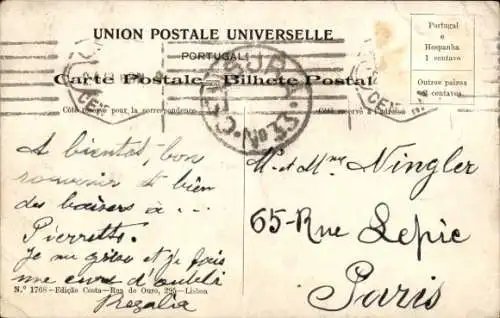 UNION POSTALE UNIVERSELLE
PORTUGAL
Carte Postale Bilhete Postal
Côté réservé pour la correspondance
Côté réservé à l'adresse
Portugal
e
Hespanha
1 centavo
Outros paizes
2 centavos
CEN
CEN
A bientôt, bon
souvenir et bien
des baisers à ...
Pierrette.
je me et je fais
une d'oubli
M. et Mme Ningler
65-Rue Lepic
Paris
N.º 1768—Edição Costa—Rua do Ouro, 295—Lisboa